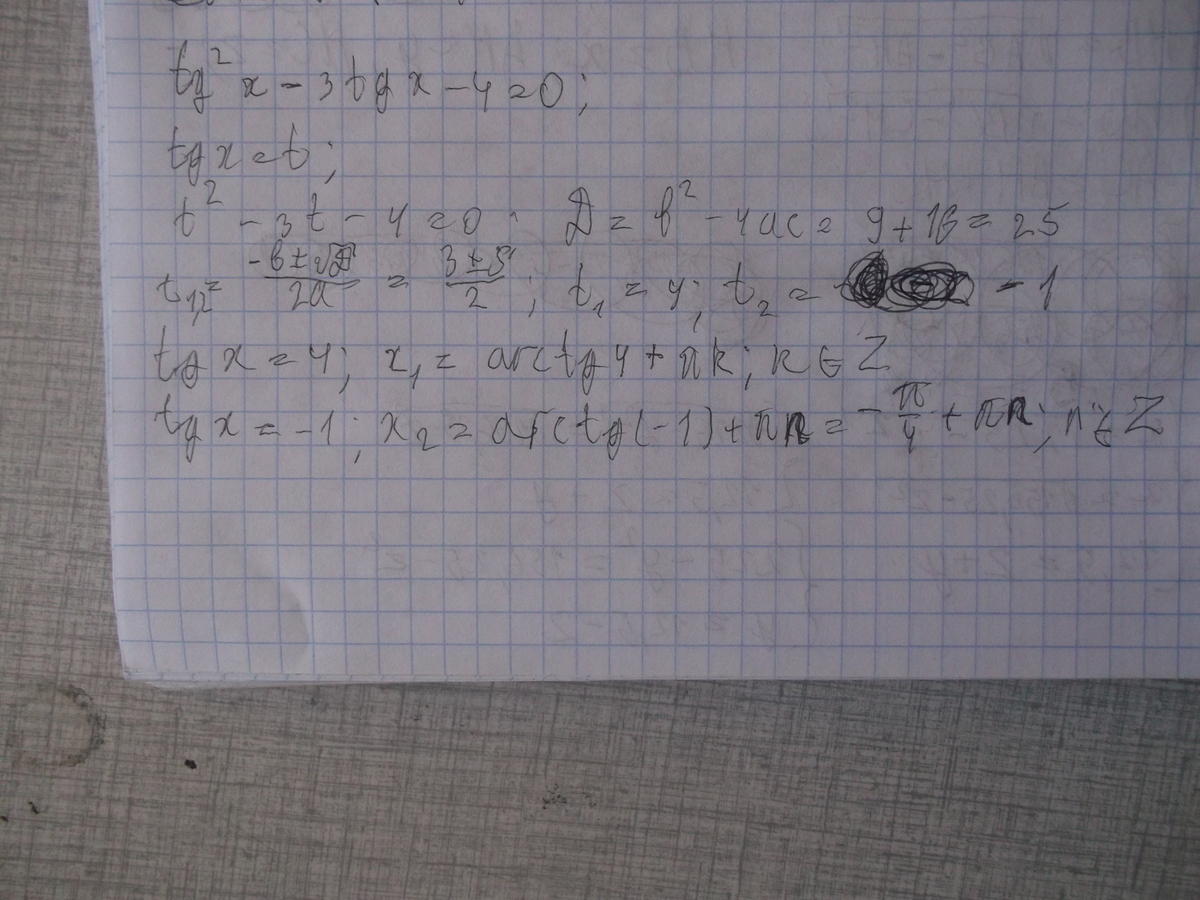 tg² x − 3 tg x − 4 = 0;
tg x = t;
t² − 3t − 4 = 0; D = b² − 4ac = 9 + 16 = 25
t₁,₂ = (−b ± √D)/2a = (3 ± 5)/2; t₁ = 4; t₂ = −1
tg x = 4; x₁ = arctg 4 + πk; k ∈ Z
tg x = −1; x₂ = arctg(−1) + πn = −π/4 + πn; n ∈ Z